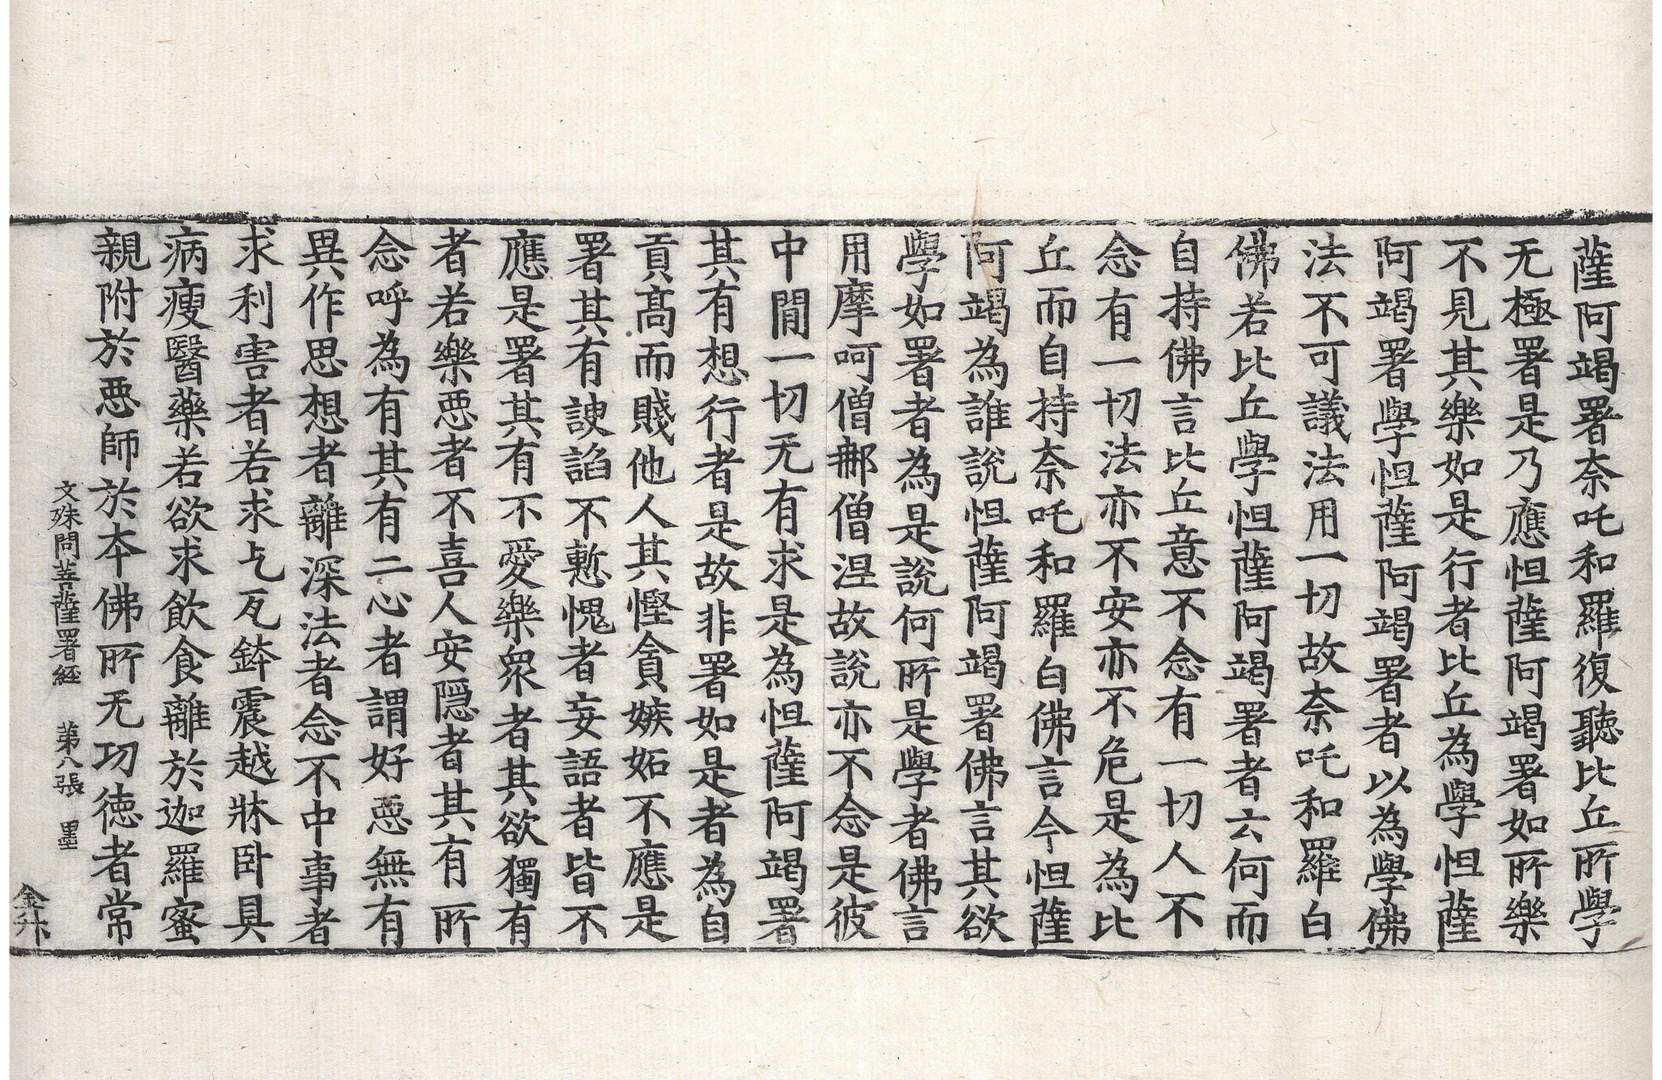 薩阿竭署奈吒和羅復聽比丘所學
无極署是乃應怛薩阿竭署如所樂
不見其樂如是行者比丘為學怛薩
阿竭署學怛薩阿竭署者以為學佛
法不可議法用一切故奈吒和羅白
佛若比丘學怛薩阿竭署者云何而
自持佛言比丘意不念有一切人不
念有一切法亦不安亦不危是為比
丘而自持奈吒和羅白佛言今怛薩
阿竭為誰說怛薩阿竭署佛言其欲
學如署者為是說何所是學者佛言
用摩呵僧那僧涅故說亦不念是彼
中間一切无有求是為怛薩阿竭署
其有想行者是故非署如是者為自
貢高而賤他人其慳貪嫉妬不應是
署其有諛諂不慙愧者妄語者皆不
應是署其有不愛樂眾者其欲獨有
者若樂惡者不喜人安隱者其有所
念呼為有其有二心者謂好惡無有
異作思想者離深法者念不中事者
求利害者若求乞瓦鉢震越牀卧具
病瘦醫藥若欲求飲食離於迦羅蜜
親附於惡師於本佛所无功德者常
文殊問菩薩署經 第八張 墨
金升